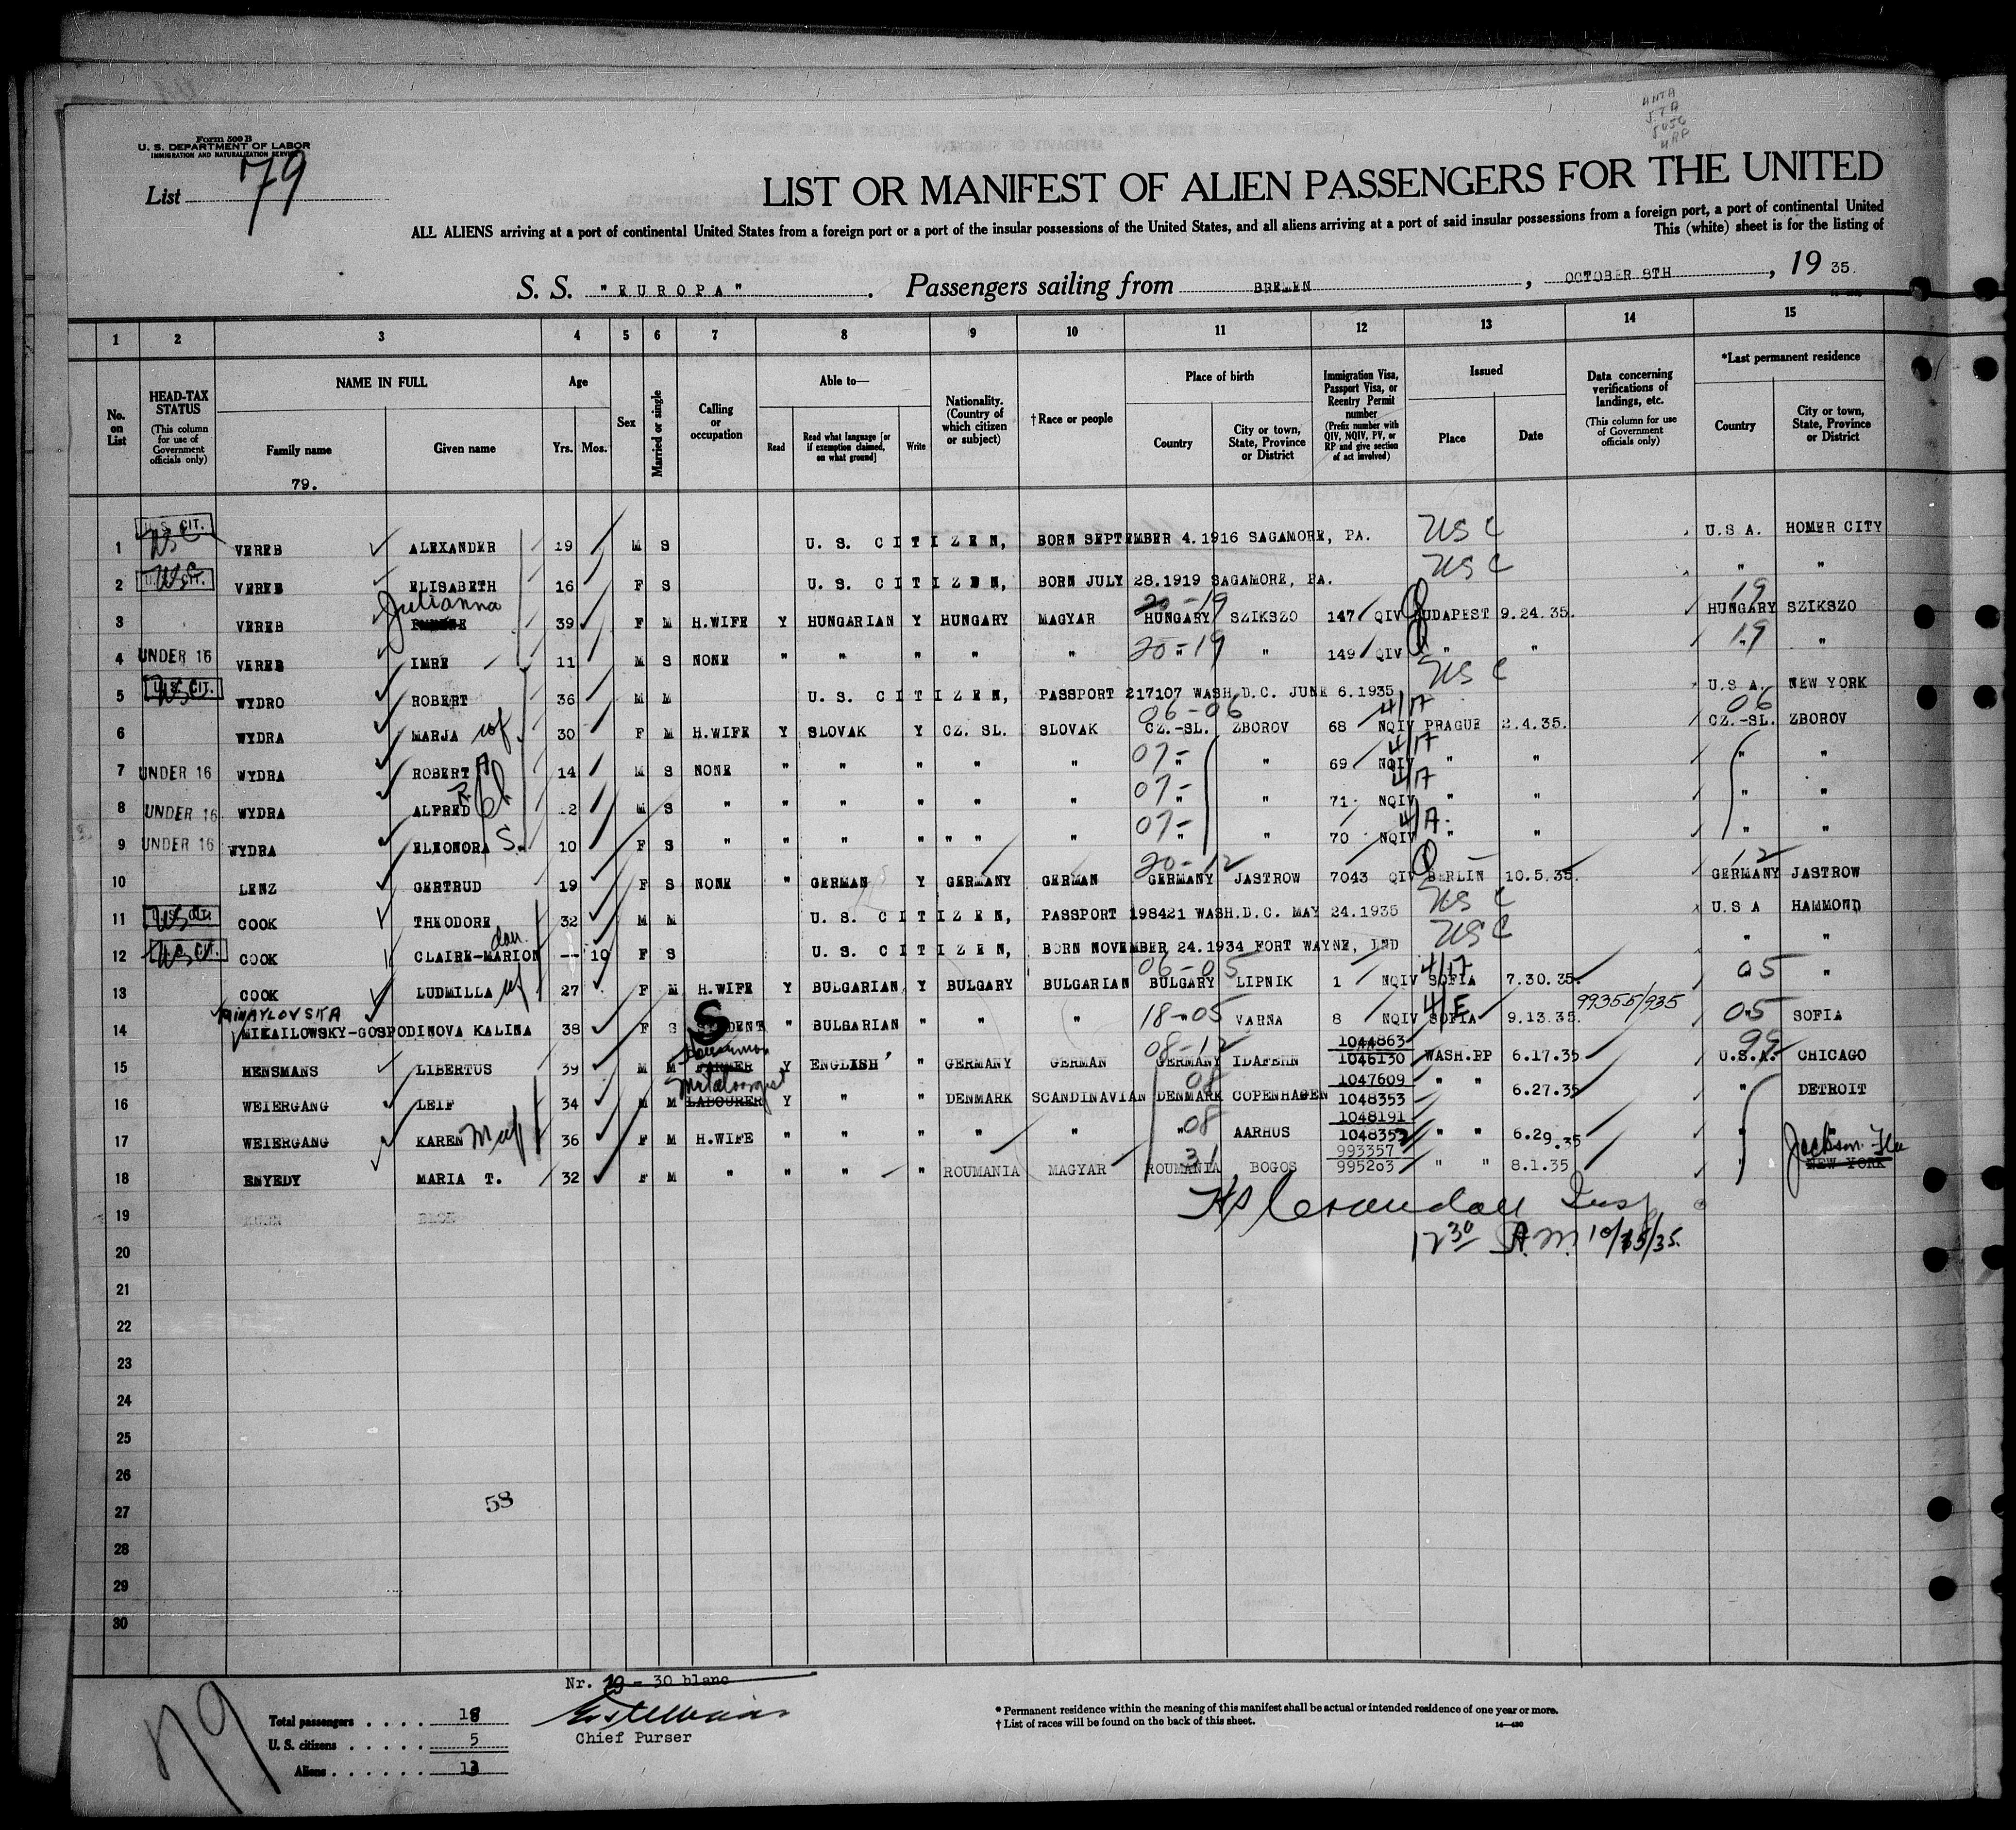 4NTA
5TA
5USC
4RP
Form 500 B
U. S. DEPARTMENT OF LABOR
IMMIGRATION AND NATURALIZATION SERVICE
List 79
LIST OR MANIFEST OF ALIEN PASSENGERS FOR THE UNITED
ALL ALIENS arriving at a port of continental United States from a foreign port or a port of the insular possessions of the United States, and all aliens arriving at a port of said insular possessions from a foreign port, a port of continental United
This (white) sheet is for the listing of
S. S. "EUROPA" . Passengers sailing from BREMEN , OCTOBER 8TH , 19 35.
1 2 3 4 5 6 7 8 9 10 11 12 13 14 15
No. on List
HEAD-TAX STATUS (This column for use of Government officials only)
NAME IN FULL
Family name
79.
Given name
Age
Yrs. Mos.
Sex
Married or single
Calling or occupation
Able to—
Read
Read what language [or if exemption claimed, on what ground]
Write
Nationality. (Country of which citizen or subject)
† Race or people
Place of birth
Country
City or town, State, Province or District
Immigration Visa, Passport Visa, or Reentry Permit number (Prefix number with QIV, NQIV, PV, or RP and give section of act involved)
Issued
Place
Date
Data concerning verifications of landings, etc. (This column for use of Government officials only)
*Last permanent residence
Country
City or town, State, Province or District
1 U. S. CIT. USC VEREB ALEXANDER 19 M S U. S. CITIZEN, BORN SEPTEMBER 4.1916 SAGAMORE, PA. USC U.S.A. HOMER CITY
2 U. S. CIT. USC VEREB ELISABETH 16 F S U. S. CITIZEN, BORN JULY 28.1919 SAGAMORE, PA. USC " "
3 VEREB Julianna 39 F M H.WIFE Y HUNGARIAN Y HUNGARY MAGYAR 20-19 HUNGARY SZIKSZO 147 QIV BUDAPEST 9.24.35. 19 HUNGARY SZIKSZO
4 UNDER 16 VEREB IMRE 11 M S NONE " " " " " 20-19 " " 149 QIV " " 19 " "
5 U. S. CIT. USC WYDRO ROBERT 36 M M U. S. CITIZEN, PASSPORT 217107 WASH.D.C. JUNE 6.1935 USC U.S.A. NEW YORK
6 WYDRA MARJA wf 30 F M H.WIFE Y SLOVAK Y CZ. SL. SLOVAK 06-06 CZ.-SL. ZBOROV 68 NQIV 4/A PRAGUE 2.4.35. 06 CZ.-SL. ZBOROV
7 UNDER 16 WYDRA ROBERT A 14 M S NONE " " " " " 07- " " 69 NQIV 4/A " " " "
8 UNDER 16 WYDRA ALFRED R. 12 M S " " " " " " 07- " " 71 NQIV 4/A " " " "
9 UNDER 16 WYDRA ELEONORA S. 10 F S " " " " " " 07- " " 70 NQIV 4/A " " " "
10 LENZ GERTRUD 19 F S NONE " GERMAN Y GERMANY GERMAN 20-12 GERMANY JASTROW 7043 QIV BERLIN 10.5.35. 12 GERMANY JASTROW
11 U. S. CIT. USC COOK THEODORE 32 M M U. S. CITIZEN, PASSPORT 198421 WASH.D.C. MAY 24.1935 USC U.S.A HAMMOND
12 U. S. CIT. USC COOK CLAIRE-MARION dau. -- 10 F S U. S. CITIZEN, BORN NOVEMBER 24.1934 FORT WAYNE, IND USC " "
13 COOK LUDMILLA wf 27 F M H.WIFE Y BULGARIAN Y BULGARY BULGARIAN 06-05 BULGARY LIPNIK 1 NQIV 4/A SOFIA 7.30.35. 05 " "
MIHAYLOVSKA
14 MIKAILOWSKY-GOSPODINOVA KALINA 38 F S STUDENT " BULGARIAN " " " 18-05 " VARNA 8 NQIV 4/E SOFIA 9.13.35. 99355/935 05 " SOFIA
15 HENSMANS LIBERTUS 39 M M FARMER Y ENGLISH " GERMANY GERMAN 08-12 GERMANY IDAFEHN 1044863 1046130 WASH.RP 6.17.35. 99 U.S.A. CHICAGO
16 WEIERGANG LEIF 34 M M LABOURER Y " " DENMARK SCANDINAVIAN 08 DENMARK COPENHAGEN 1047609 1048353 " " 6.27.35 " DETROIT
17 WEIERGANG KAREN M wf 36 F M H.WIFE " " " " " 08 " AARHUS 1048191 1048352 " " 6.29.35 " "
18 ENYEDY MARIA T. 32 F M " " " " ROUMANIA MAGYAR 31 ROUMANIA BOGOS 993357 995203 " " 8.1.35 " NEW YORK Jackson
19
Crandall Insp
12 30 A.M. 10/15/35.
20
21
22
23
24
25
26
27
28
29
30
58
Nr. 19 - 30 blanc
79
Total passengers . . . . 18
U. S. citizens . . . . . 5
Aliens . . . . . . 13
Chief Purser
* Permanent residence within the meaning of this manifest shall be actual or intended residence of one year or more.
† List of races will be found on the back of this sheet.
14—430